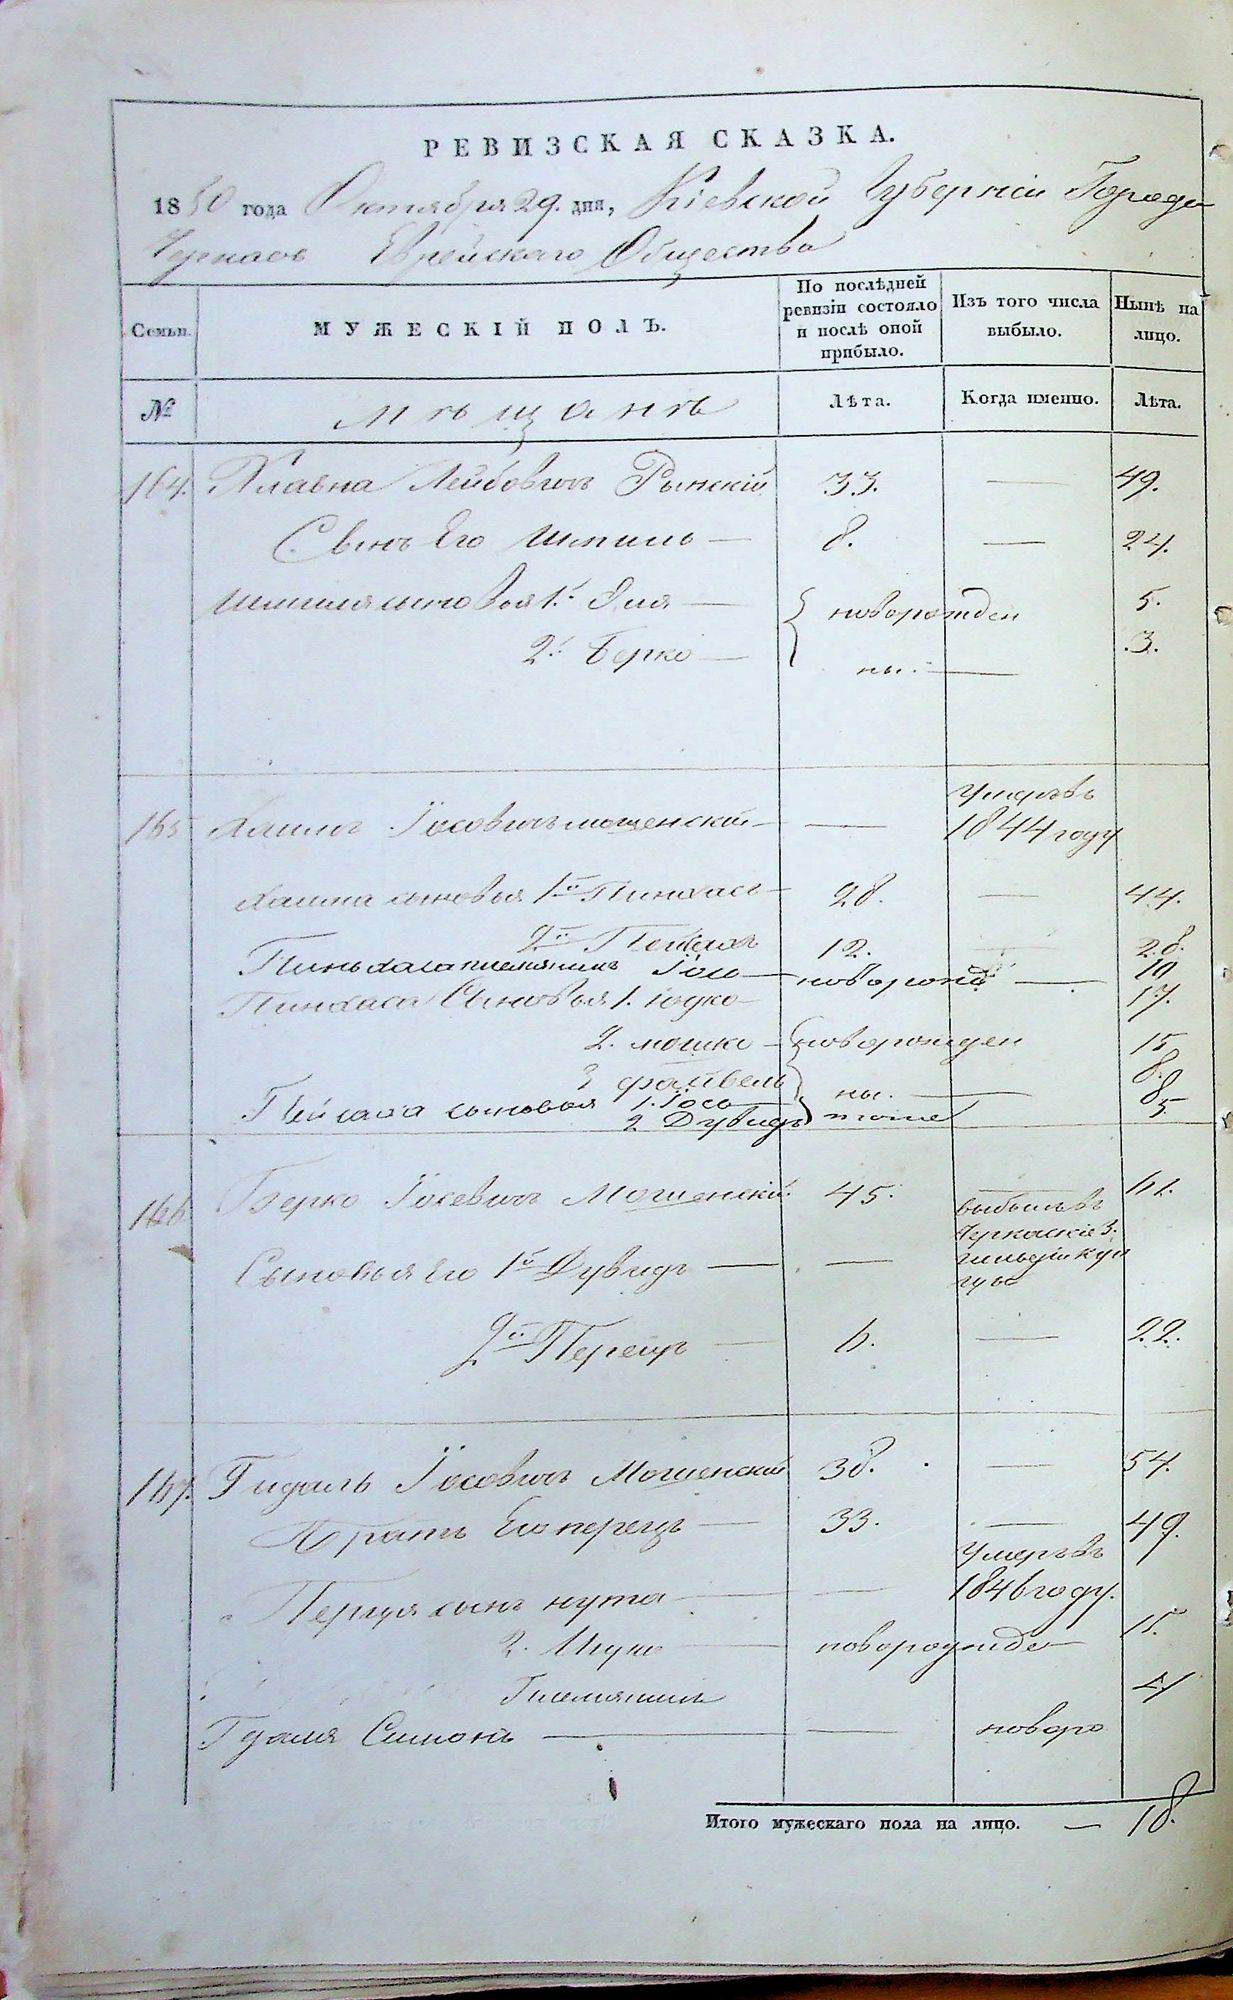 РЕВИЗСКАЯ СКАЗКА.
1850 года Октября 29. дня, Кіевской Губерніи Города
Черкасъ Еврейскаго Общества
Семьи. МУЖЕСКІЙ ПОЛЪ. По послѣдней ревизіи состояло и послѣ оной прибыло. Изъ того числа выбыло. Нынѣ на лицо.
№ мѣщанѣ Лѣта. Когда именно. Лѣта.
164. Хлавна Лейбовичъ Рынскій 33. — 49.
Сынъ Его Шмиль — 8. — 24.
Шмиля сыновья 1.й Эля — новорожден 5.
2.й Берко — ны. — 3.
165 Хаимъ Іосовичъ мошенскій — — умеръ въ 1844 году
Хаима сыновья 1й Пинхасъ — 28. — 44.
2й Пейсахъ 12. — 28.
Пиньхаса племяникъ Іось — новорожд — 19
Пинхаса Сыновья 1. Юдко — 17.
2. мошко — новорожден 15
3 файвель ны. — 8.
Пейсаха сыновья 1. Іось — 8
2 Дувидъ тоже 5
166 Берко Іосевичъ Мошенскій. 45. — 61.
Сыновья Его 1й Дувидъ — — выбылъ въ Черкаскіе 3. гильдіи купцы
2й Перецъ — 6. — 22.
167. Гидаль Іосовичъ Мошенскій 38. — 54.
Братъ Его перецъ — 33. — 49.
Перца сынъ нута — — умеръ въ 1846 году.
2. Ицко — новорожде — 15.
Племяникъ 4
Гдаля Симонъ — — новоро
Итого мужескаго пола на лицо. — 18.